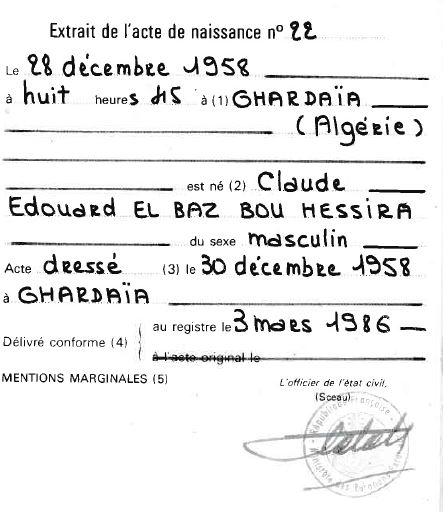 Extrait de l'acte de naissance nº 22
Le 28 décembre 1958
à huit heures 45 à (1) GHARDAÏA
(Algérie)
est né (2) Claude
Edouard EL BAZ BOU HESSIRA
du sexe masculin
Acte dressé (3) le 30 décembre 1958
à GHARDAÏA
Délivré conforme (4)
au registre le 3 mars 1986
à l'acte original le
MENTIONS MARGINALES (5)
L'officier de l'état civil,
(Sceau)
République Française